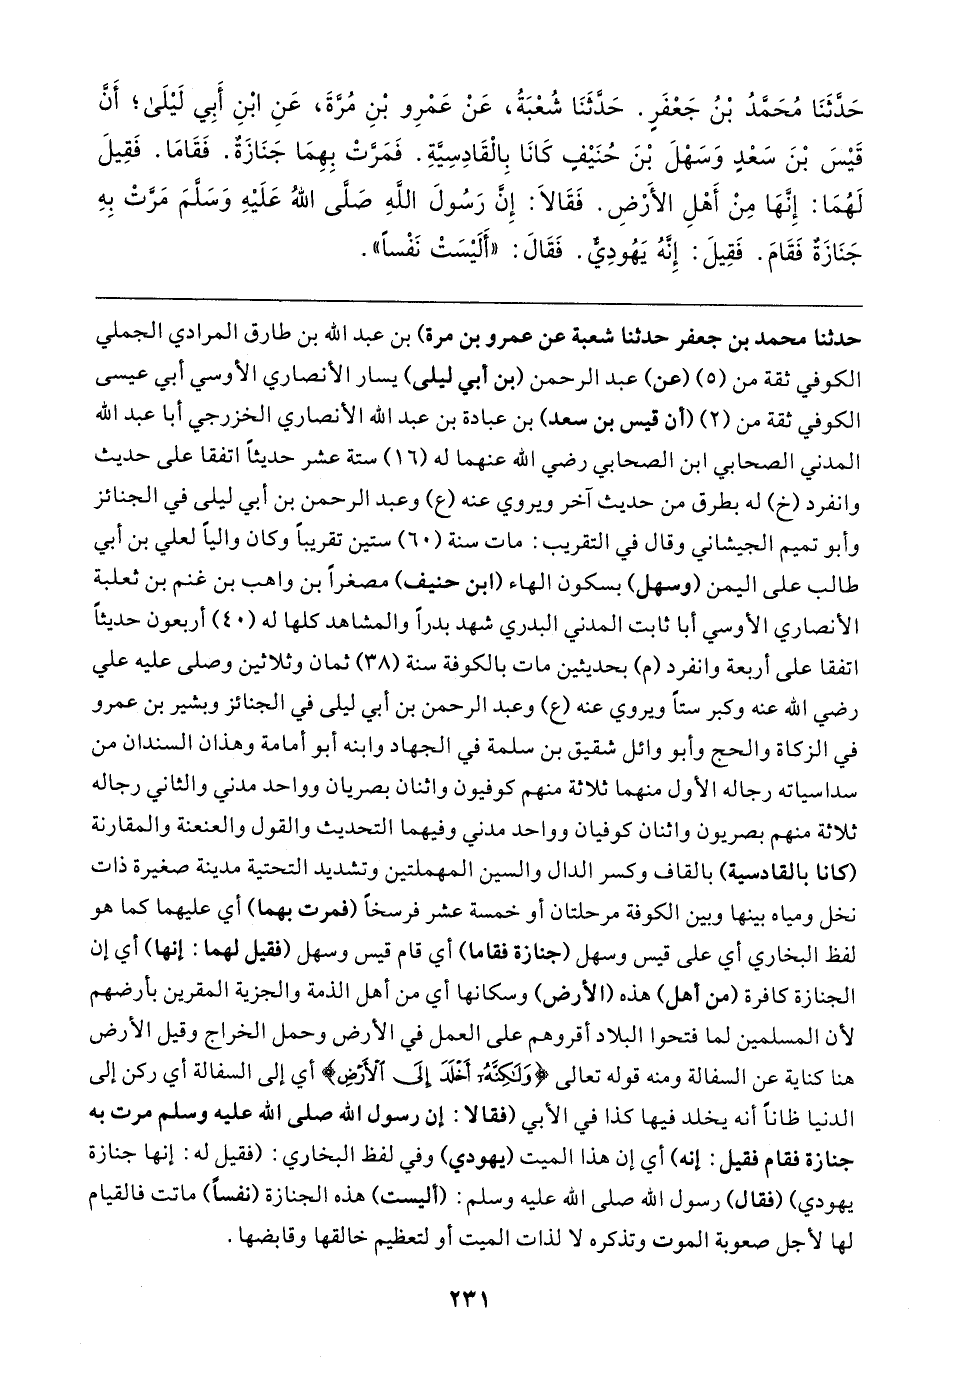 حَدَّثَنَا مُحَمَّدُ بْنُ جَعْفَرٍ. حَدَّثَنَا شُعْبَةُ، عَنْ عَمْرِو بْنِ مُرَّةَ، عَنِ ابْنِ أَبِي لَيْلَىٰ؛ أَنَّ
قَيْسَ بْنَ سَعْدٍ وَسَهْلَ بْنَ حُنَيْفٍ كَانَا بِالْقَادِسِيَّةِ. فَمَرَّتْ بِهِمَا جَنَازَةٌ. فَقَامَا. فَقِيلَ
لَهُمَا: إِنَّهَا مِنْ أَهْلِ الأَرْضِ. فَقَالَا: إِنَّ رَسُولَ اللَّهِ صَلَّى اللهُ عَلَيْهِ وَسَلَّمَ مَرَّتْ بِهِ
جَنَازَةٌ فَقَامَ. فَقِيلَ: إِنَّهُ يَهُودِيٌّ. فَقَالَ: «أَلَيْسَتْ نَفْساً».
حدثنا محمد بن جعفر حدثنا شعبة عن عمرو بن مرة) بن عبد الله بن طارق المرادي الجملي
الكوفي ثقة من (٥) (عن) عبد الرحمن (بن أبي ليلى) يسار الأنصاري الأوسي أبي عيسى
الكوفي ثقة من (٢) (أن قيس بن سعد) بن عبادة بن عبد الله الأنصاري الخزرجي أبا عبد الله
المدني الصحابي ابن الصحابي رضي الله عنهما له (١٦) ستة عشر حديثاً اتفقا على حديث
وانفرد (خ) له بطرق من حديث آخر ويروي عنه (ع) وعبد الرحمن بن أبي ليلى في الجنائز
وأبو تميم الجيشاني وقال في التقريب: مات سنة (٦٠) ستين تقريباً وكان والياً لعلي بن أبي
طالب على اليمن (وسهل) بسكون الهاء (ابن حنيف) مصغراً بن واهب بن غنم بن ثعلبة
الأنصاري الأوسي أبا ثابت المدني البدري شهد بدراً والمشاهد كلها له (٤٠) أربعون حديثاً
اتفقا على أربعة وانفرد (م) بحديثين مات بالكوفة سنة (٣٨) ثمان وثلاثين وصلى عليه علي
رضي الله عنه وكبر ستاً ويروي عنه (ع) وعبد الرحمن بن أبي ليلى في الجنائز وبشير بن عمرو
في الزكاة والحج وأبو وائل شقيق بن سلمة في الجهاد وابنه أبو أمامة وهذان السندان من
سداسياته رجاله الأول منهما ثلاثة منهم كوفيون واثنان بصريان وواحد مدني والثاني رجاله
ثلاثة منهم بصريون واثنان كوفيان وواحد مدني وفيهما التحديث والقول والعنعنة والمقارنة
(كانا بالقادسية) بالقاف وكسر الدال والسين المهملتين وتشديد التحتية مدينة صغيرة ذات
نخل ومياه بينها وبين الكوفة مرحلتان أو خمسة عشر فرسخاً (فمرت بهما) أي عليهما كما هو
لفظ البخاري أي على قيس وسهل (جنازة فقاما) أي قام قيس وسهل (فقيل لهما: إنها) أي إن
الجنازة كافرة (من أهل) هذه (الأرض) وسكانها أي من أهل الذمة والجزية المقرين بأرضهم
لأن المسلمين لما فتحوا البلاد أقروهم على العمل في الأرض وحمل الخراج وقيل الأرض
هنا كناية عن السفالة ومنه قوله تعالى ﴿وَلَٰكِنَّهُۥٓ أَخْلَدَ إِلَى ٱلْأَرْضِ﴾ أي إلى السفالة أي ركن إلى
الدنيا ظاناً أنه يخلد فيها كذا في الأبي (فقالا: إن رسول الله صلى الله عليه وسلم مرت به
جنازة فقام فقيل: إنه) أي إن هذا الميت (يهودي) وفي لفظ البخاري: (فقيل له: إنها جنازة
يهودي) (فقال) رسول الله صلى الله عليه وسلم: (أليست) هذه الجنازة (نفساً) ماتت فالقيام
لها لأجل صعوبة الموت وتذكره لا لذات الميت أو لتعظيم خالقها وقابضها.
٢٣١